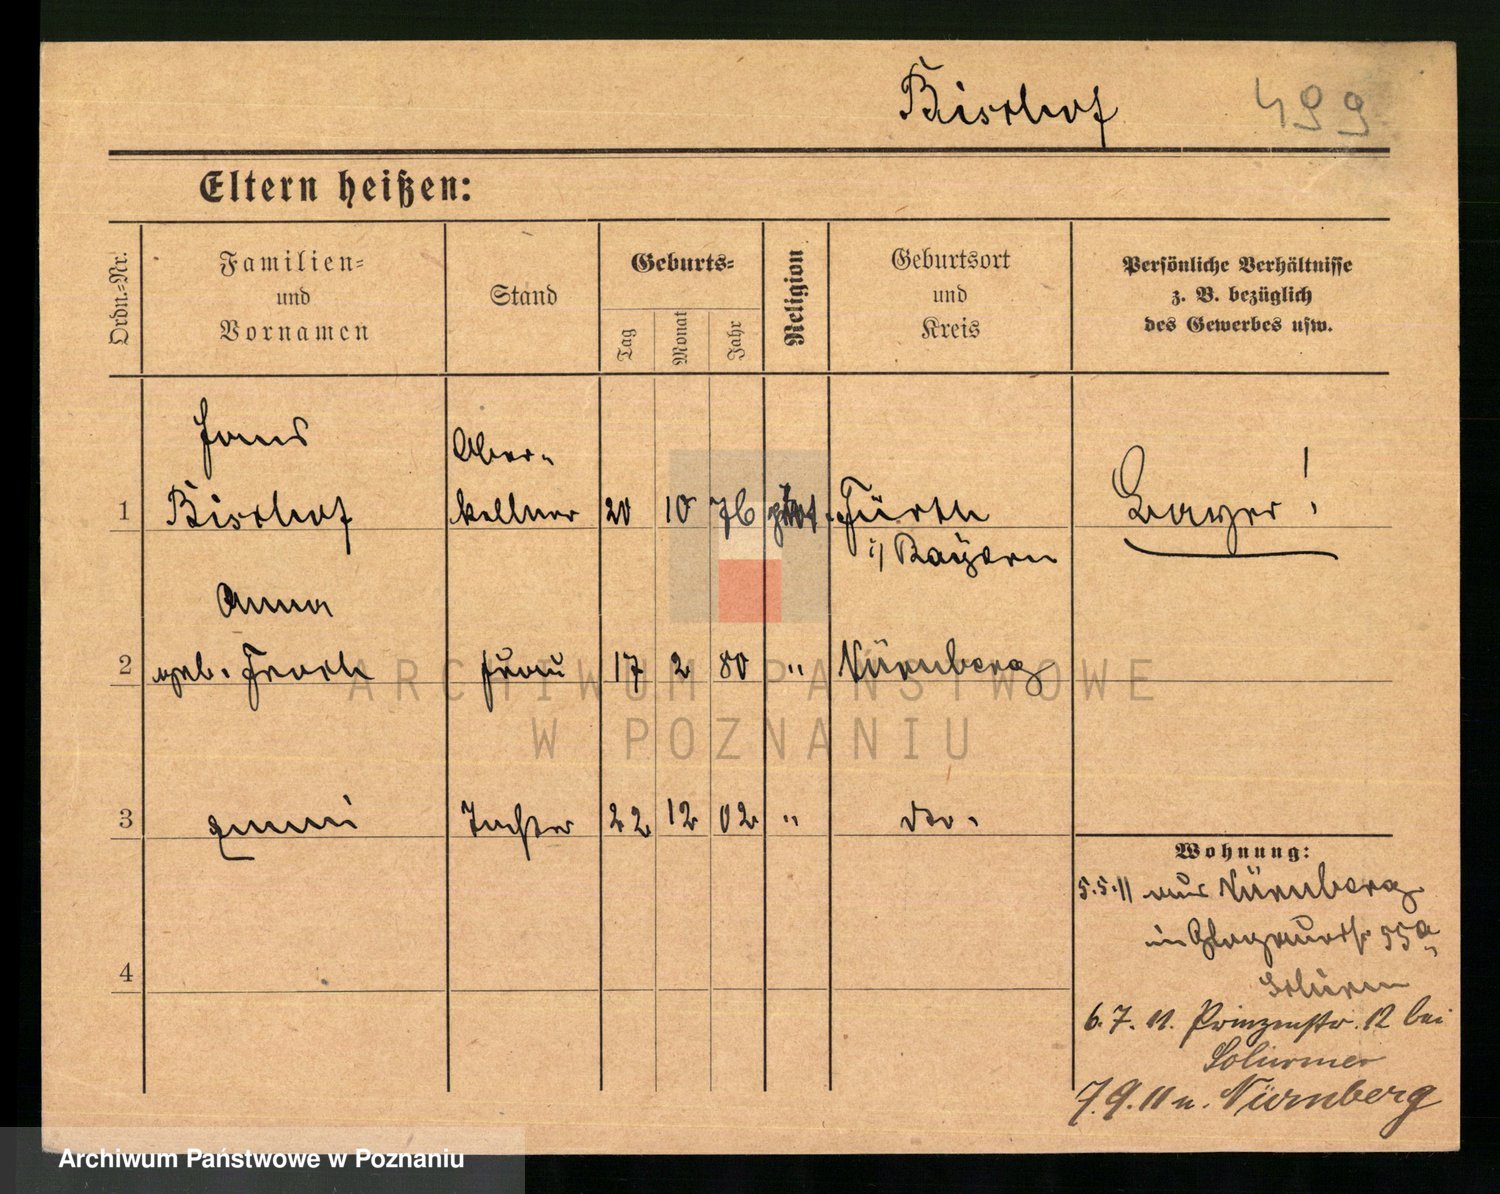 Bischof 499
Eltern heißen:
Ordn.-Nr.
Familien-
und
Vornamen
Stand
Geburts-
Tag
Monat
Jahr
Religion
Geburtsort
und
Kreis
Persönliche Verhältnisse
z. B. bezüglich
des Gewerbes usw.
Hans
Ober-
1 Bischof kellner 20 10 76 prot. Fürth
i/ Bayern
Bayer!
Anna
2 geb. Frau 17 2 80 " Nürnberg
3 Emmi Tochter 22 12 02 " do.
4
Wohnung:
5.5.11 aus Nürnberg
55a
6.7.11. Prinzenstr. 12 bei
Schirmer
7.9.11 n. Nürnberg
ARCHIWUM PAŃSTWOWE
W POZNANIU
Archiwum Państwowe w Poznaniu